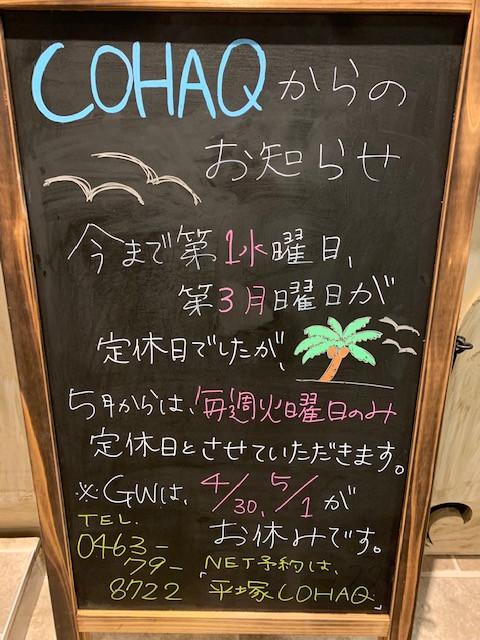 COHAQからの
お知らせ
今まで第1水曜日、
第3月曜日が
定休日でしたが、
5月からは、毎週火曜日のみ
定休日とさせていただきます。
※GWは、4/30、5/1が
お休みです。
TEL.
0463-
79-
8722
NET予約は、
「平塚COHAQ」